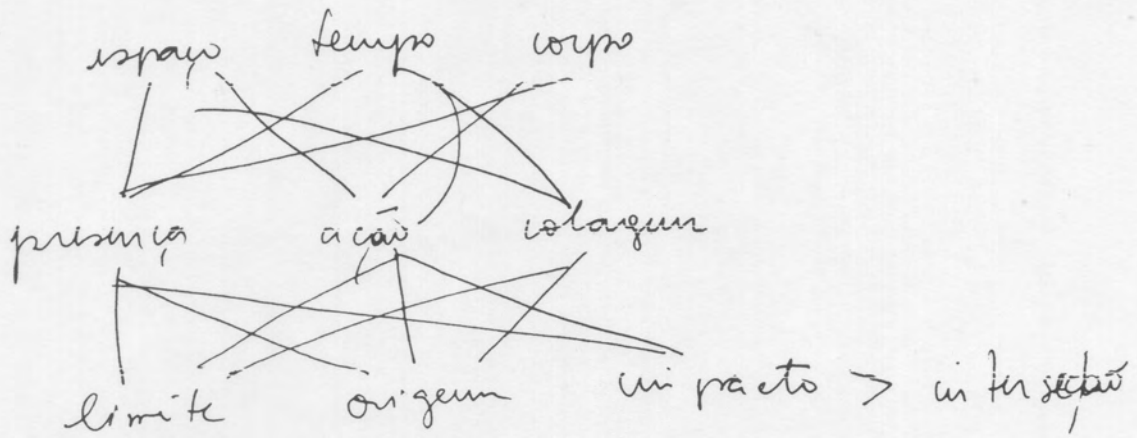 espaço tempo corpo
presença ação colagem
limite origem impacto > interseção